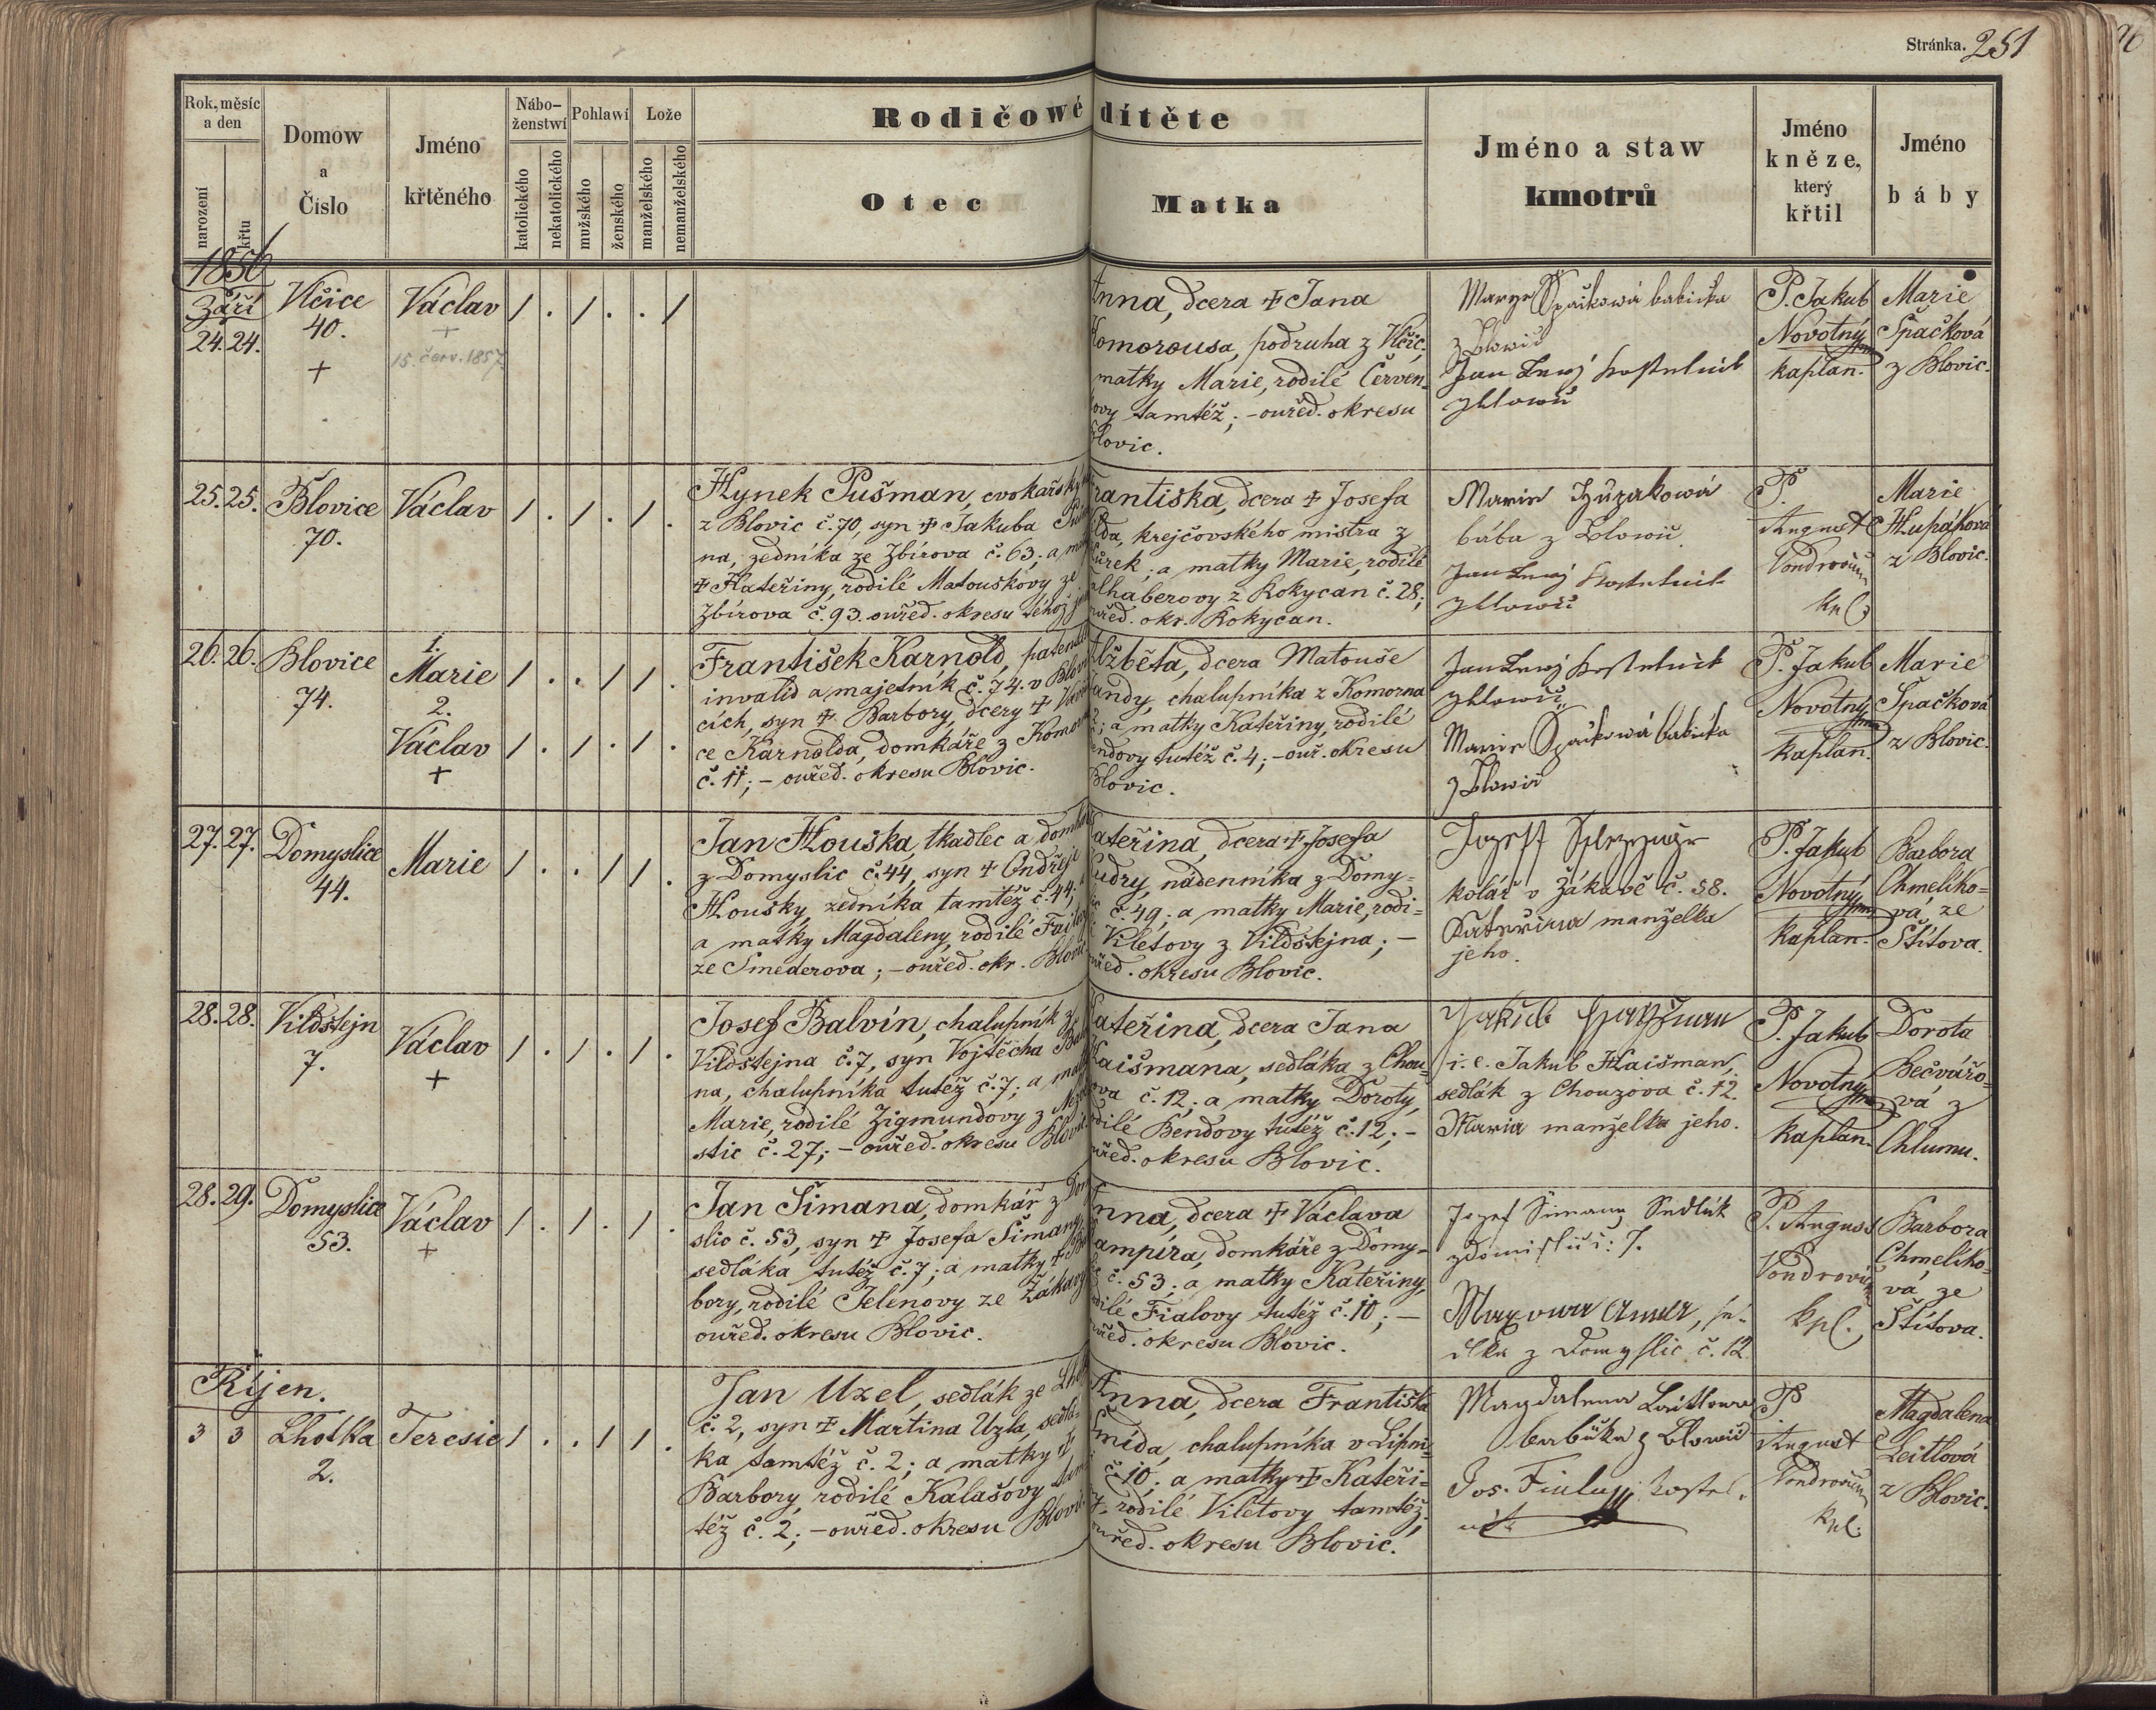 Stránka. 251
Rok, měsíc
a den
narození
křtu
Domow
a
Číslo
Jméno
křtěného
Nábo-
ženstwí
katolického
nekatolického
Pohlawí
mužského
ženského
Lože
manželského
nemanželského
Rodičowé dítěte
Otec
Matka
Jméno a staw
kmotrů
Jméno
kněze,
který
křtil
Jméno
báby
1856
Září
24. 24.
Vlčice
40.
+
Václav
+
15. červ. 1857.
1 . 1 . . 1
Anna, dcera + Jana
Komorousa, podruha z Vlčic,
matky Marie, rodilé Červen-
ovy tamtéž; - ouřed. okresu
Blovic.
Marye Špačková babička
z Blowic
Jan Lewý kostelník
z Blowic
P. Jakub
Novotný
kaplan.
Marie
Špačková
z Blovic.
25. 25.
Blovice
70.
Václav
1 . 1 . 1 .
Hynek Pušman, cvokařský
z Blovic č. 70, syn + Jakuba
na, zedníka ze Zbirova č. 63; a
+ Kateřiny, rodilé Matouškovy ze
Zbirova č. 93. ouřed. okresu téhož
Františka, dcera + Josefa
krejčovského mistra z
a matky Marie, rodilé
z Rokycan č. 28;
ouřed. okr. Rokycan.
Marie
bába z Blowic
Jan Lewý kostelník
z Blowic
P.
August
Vondrovic
kpl.
Marie
Hupáková
z Blovic.
26. 26.
Blovice
74.
1.
Marie
2.
Václav
+
1 . . 1 1 .
1 . 1 . 1 .
František Karnold, patental
invalid a majetník č. 74. v Blovi
cích, syn + Barbory, dcery + Václa
ce Karnolda, domkáře z Komorna
č. 11; - ouřed. okresu Blovic.
Alžběta, dcera Matouše
chalupníka z Komorna
a matky Kateřiny, rodilé
tutéž č. 4; - ouř. okresu
Blovic.
Jan Lewý kostelník
z Blowic
Marie Špačková babička
z Blowic
P. Jakub
Novotný
kaplan.
Marie
Špačková
z Blovic.
27. 27.
Domyslice
44.
Marie
1 . . 1 1 .
Jan Houška, tkadlec a domkář
z Domyslic č. 44, syn + Ondřeje
Houšky, zedníka tamtéž č. 44;
a matky Magdaleny, rodilé
ze Smederova; - ouřed. okr. Blovic
Kateřina, dcera + Josefa
Kudry, nádenníka z Domy-
č. 49; a matky Marie, rodi-
Viletovy z Vildštejna; -
ouřed. okresu Blovic.
Jozeff
kolář v Žákavě č. 58.
Kateřina manželka
jeho.
P. Jakub
Novotný
kaplan.
Barbora
Chmelíko-
vá, ze
Štítova.
28. 28.
Vildštejn
7.
Václav
+
1 . 1 . 1 .
Josef Balvín, chalupník z
Vildštejna č. 7, syn Vojtěcha Balví
na, chalupníka tutéž č. 7; a matky
Marie, rodilé Zigmundovy z
stic č. 27; - ouřed. okresu Blovic.
Kateřina, dcera Jana
Haišmana, sedláka z Chou-
zova č. 12; a matky Doroty,
rodilé Bendovy tutéž č. 12; -
ouřed. okresu Blovic.
Jakub Hayžman
i. e. Jakub Haišman,
sedlák z Chouzova č. 12.
Maria manželka jeho.
P. Jakub
Novotný
kaplan.
Dorota
Bečvářo-
vá z
Chlumu.
28. 29.
Domyslice
53.
Václav
+
1 . 1 . 1 .
Jan Šimana, domkář z Domy
slic č. 53, syn + Josefa Šimany,
sedláka tutéž č. 7; a matky + Bar
bory, rodilé Jelenovy ze Žákavy
ouřed. okresu Blovic.
Anna, dcera + Václava
domkáře z Domy-
č. 53; a matky Kateřiny,
rodilé Fialovy tutéž č. 10; -
ouřed. okresu Blovic.
Jozef Šimana Sedlák
z Domislic č: 7.
Anna, se-
dlka z Domyslic č. 12
P. August
Vondrovic
kpl.
Barbora
Chmelíko-
vá, ze
Štítova.
Říjen.
3 3
Lhotka
2.
Teresie
1 . . 1 1 .
Jan Uzel, sedlák ze Lhotky
č. 2, syn + Martina Uzla, sedlá-
ka tamtéž č. 2; a matky +
Barbory, rodilé Kalašovy tam
též č. 2; - ouřed. okresu Blovic.
Anna, dcera Františka
Šmída, chalupníka v Lipni-
č. 10; a matky + Kateři-
rodilé Viletovy tamtéž.
ouřed. okresu Blovic.
Magdalena Laitlowa
babička z Blowic
Jos. Fiala, kostel-
ník
P
August
Vondrovic
kpl.
Magdalena
Leitlová
z Blovic.